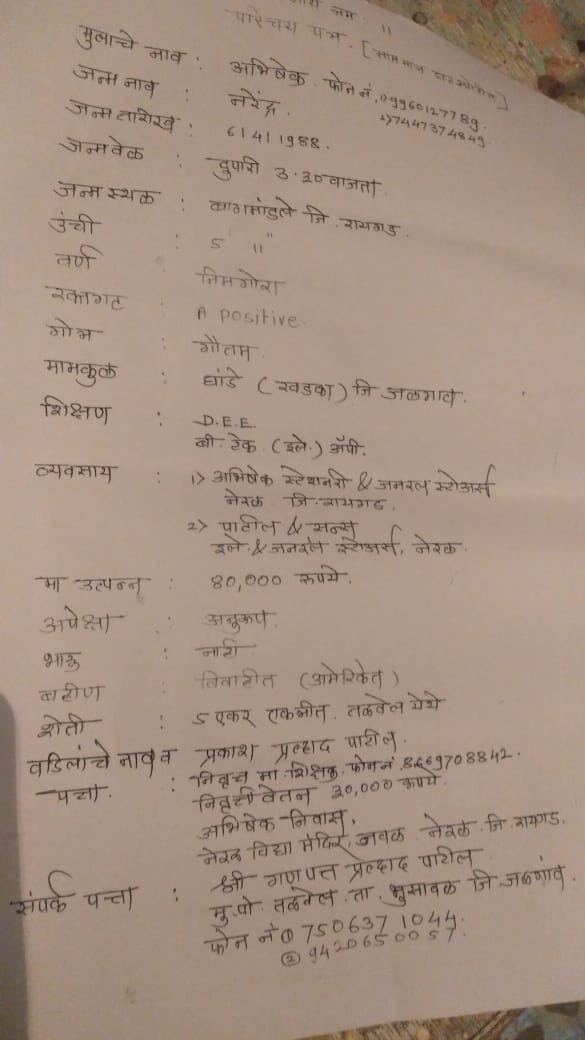 परिचय पत्र.
मुलाचे नाव : अभिषेक. फोन नं. १) 9960127789.
२) 7447374849.
जन्म नाव : नरेंद्र.
जन्म तारीख : 6।4।1988.
जन्मवेळ : दुपारी 3.30 वाजता.
जन्म स्थळ : बागमांडले जि. रायगड.
उंची : 5 ''
वर्ण : निमगोरा
रक्तगट : A positive.
गोत्र : गौतम.
मामकुळ : धांडे (खडका) जि जळगाव.
शिक्षण : D.E.E.
बी. टेक. (इले.) ॲपी.
व्यवसाय : 1) अभिषेक स्टेशनरी & जनरल स्टोअर्स
नेरळ जि. रायगड.
2) पाटील & सन्स
इले. & जनरल स्टोअर्स, नेरळ.
मा उत्पन्न : 80,000 रुपये.
अपेक्षा : अनुरूप.
भाऊ : नाही
बहीण : विवाहीत (अमेरिकेत)
शेती : 5 एकर एकत्रीत. तळवेल येथे
वडिलांचे नाव व प्रकाश प्रल्हाद पाटील.
पत्ता. : निवृत्त मा. शिक्षक. फोन नं 8669708842.
निवृत्ती वेतन 30,000 रुपये.
अभिषेक निवास,
नेरळ विद्या मंदिर, जवळ नेरळ. जि. रायगड.
संपर्क पत्ता : श्री गणपत प्रल्हाद पाटील
मु. पो. तळवेल. ता. भुसावळ जि. जळगांव.
फोन नं ① 7506371044.
② 9420650057.